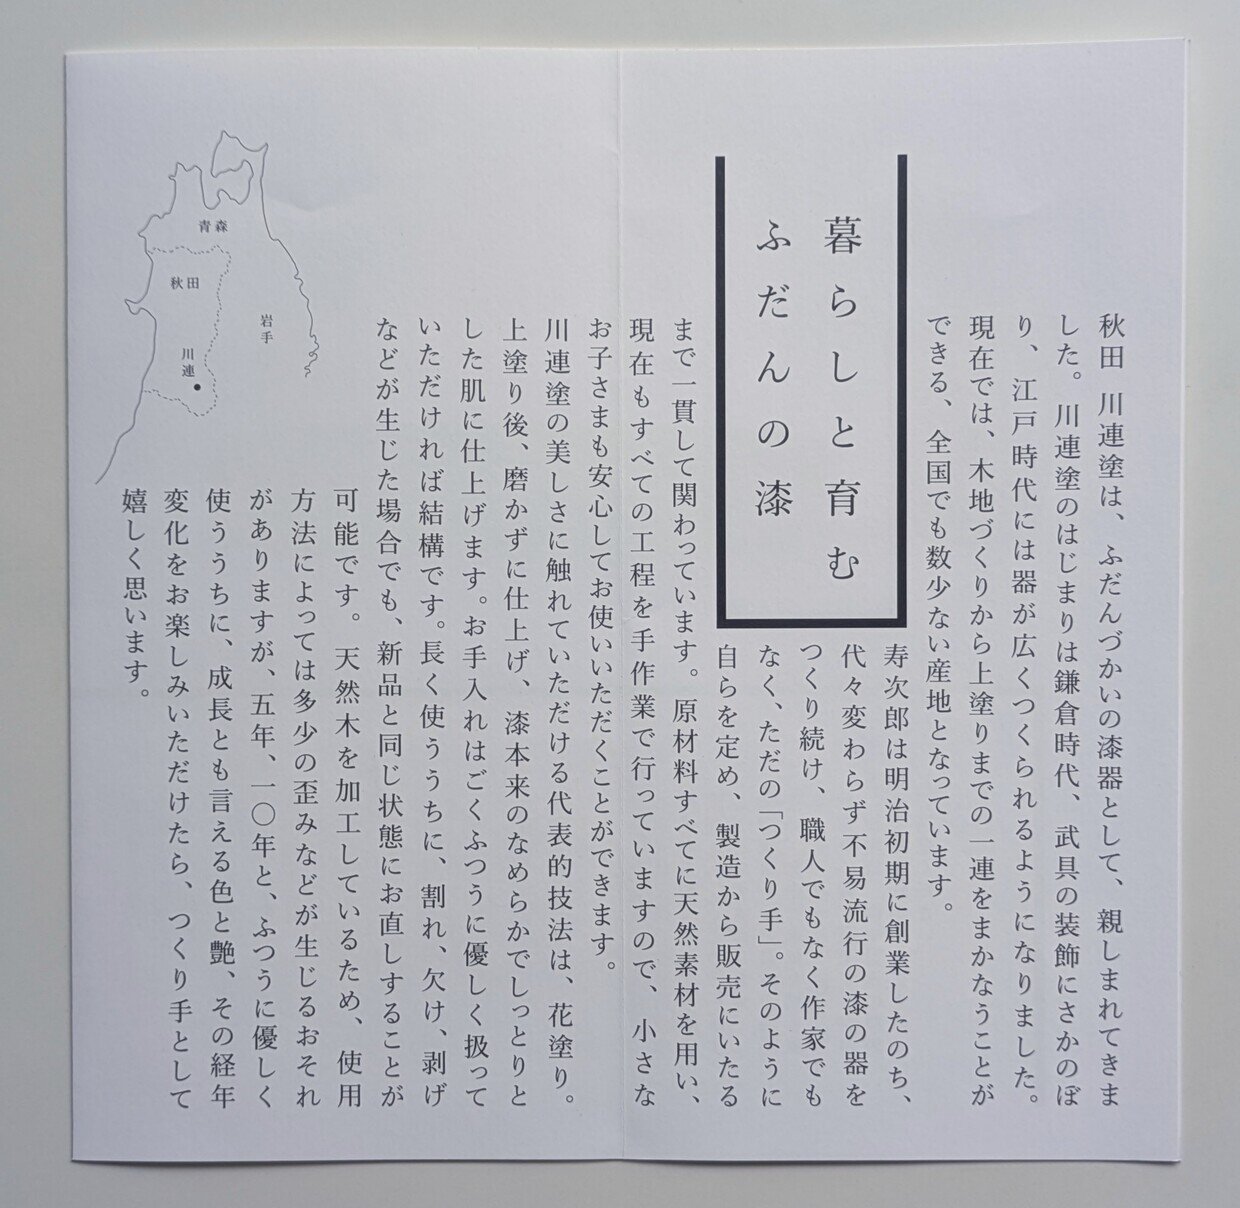 秋田 川連塗は、ふだんづかいの漆器として、親しまれてきま
した。川連塗のはじまりは鎌倉時代、武具の装飾にさかのぼ
り、江戸時代には器が広くつくられるようになりました。
現在では、木地づくりから上塗りまでの一連をまかなうことが
できる、全国でも数少ない産地となっています。
暮らしと育む
ふだんの漆
寿次郎は明治初期に創業したのち、
代々変わらず不易流行の漆の器を
つくり続け、職人でもなく作家でも
なく、ただの「つくり手」。そのように
自らを定め、製造から販売にいたる
まで一貫して関わっています。原材料すべてに天然素材を用い、
現在もすべての工程を手作業で行っていますので、小さな
お子さまも安心してお使いいただくことができます。
川連塗の美しさに触れていただける代表的技法は、花塗り。
上塗り後、磨かずに仕上げ、漆本来のなめらかでしっとりと
した肌に仕上げます。お手入れはごくふつうに優しく扱って
いただければ結構です。長く使ううちに、割れ、欠け、剥げ
などが生じた場合でも、新品と同じ状態にお直しすることが
可能です。天然木を加工しているため、使用
方法によっては多少の歪みなどが生じるおそれ
がありますが、五年、一〇年と、ふつうに優しく
使ううちに、成長とも言える色と艶、その経年
変化をお楽しみいただけたら、つくり手として
嬉しく思います。
青森
秋田
岩手
川連